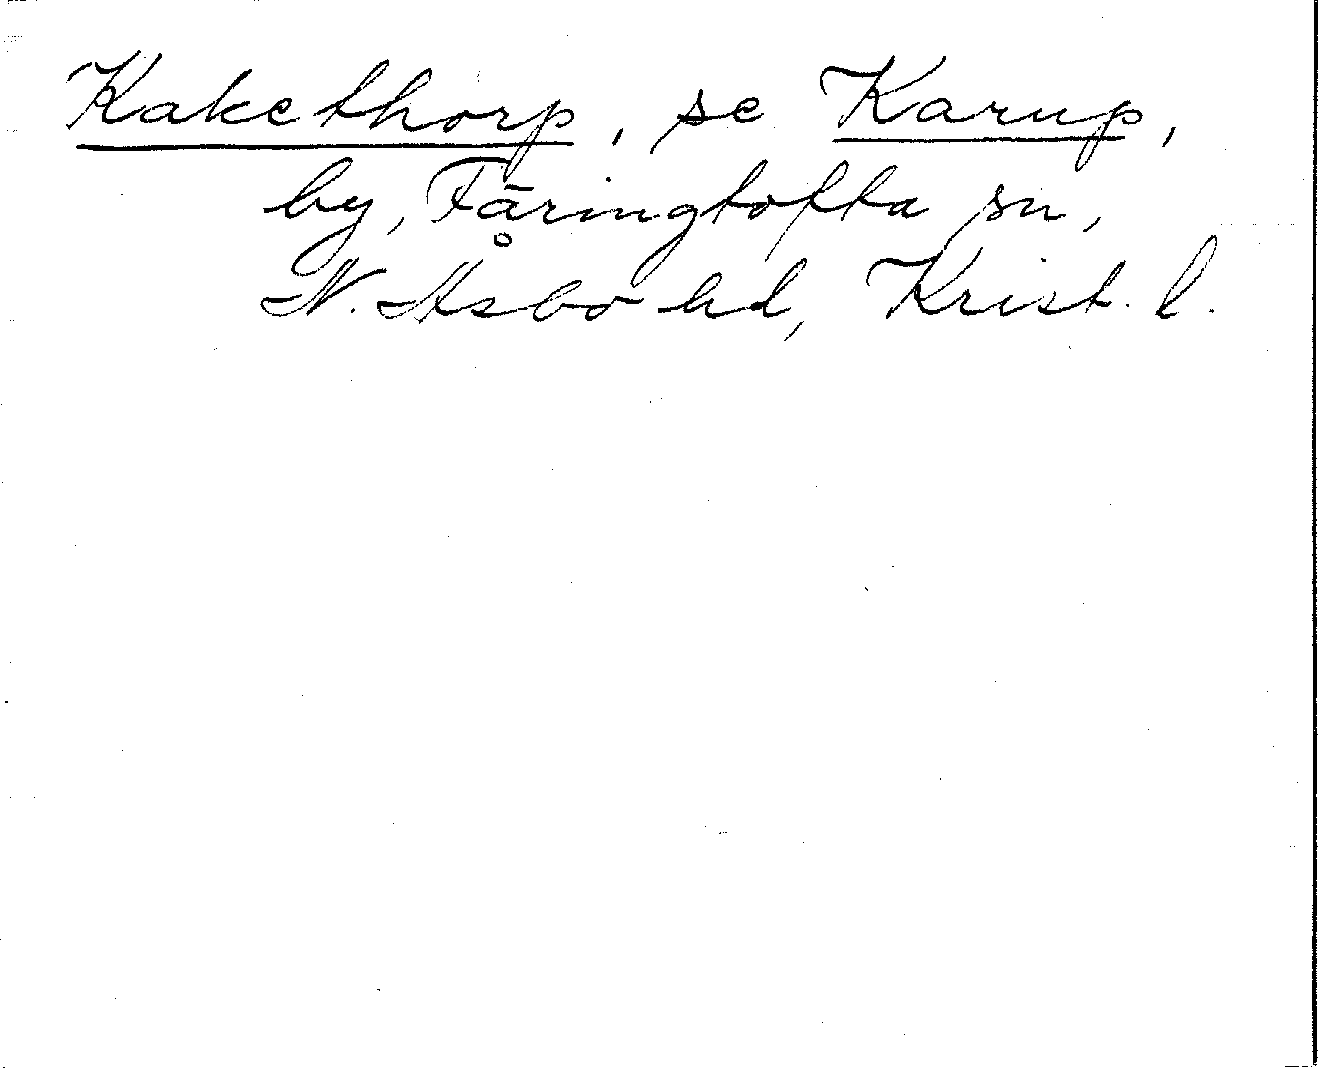 Kakethorp, se Karup,
by, Färingtofta sn,
N. Åsbo hd, Krist. l.